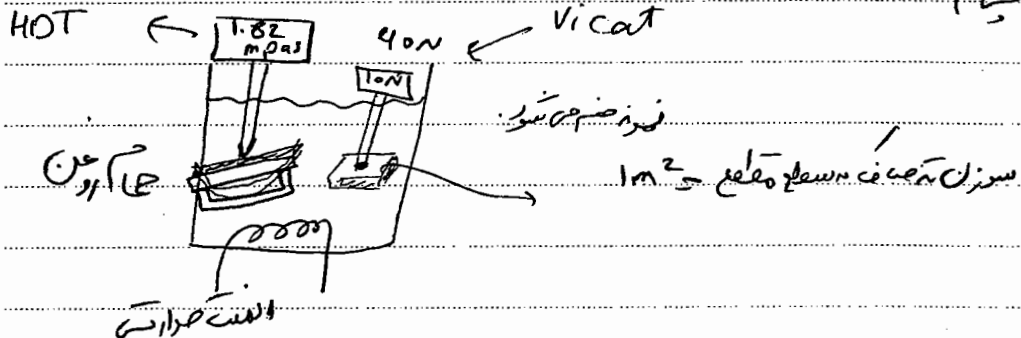 HDT
1.82
mpas
40N
Vicat
10N
نمونه خم می شود.
حمام روغن
سوزن ته صاف به سطح مقطع = 1m²
المنت حرارتی